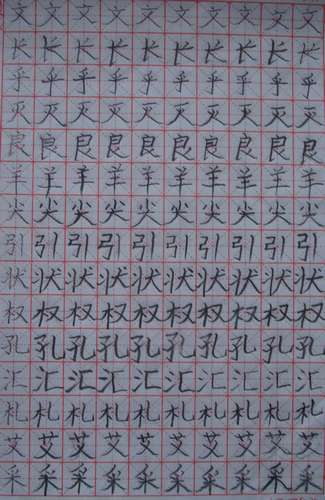 文文文文文文文文文文
长长长长长长长长长长
乎乎乎乎乎乎乎乎乎乎
灭灭灭灭灭灭灭灭灭灭
良良良良良良良良良良
羊羊羊羊羊羊羊羊羊羊
尖尖尖尖尖尖尖尖尖尖
引引引引引引引引引引
状状状状状状状状状状
权权权权权权权权权权
孔孔孔孔孔孔孔孔孔孔
汇汇汇汇汇汇汇汇汇汇
札札札札札札札札札札
艾艾艾艾艾艾艾艾艾艾
采采采采采采采采采采